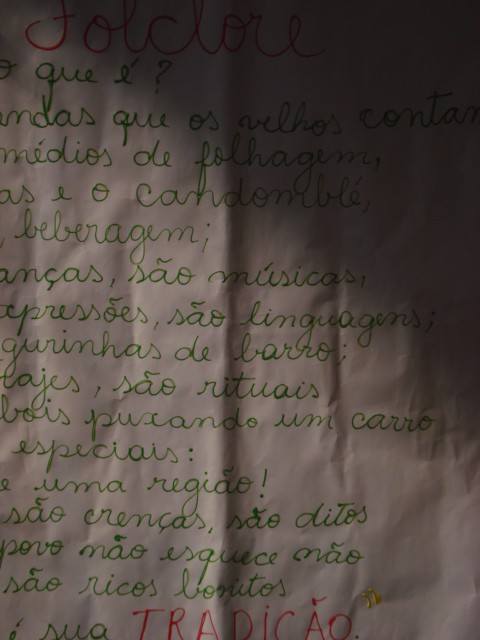 Folclore
o que é?
endas que os velhos contam
médios de folhagem,
as e o candomblé,
, beberagem;
anças, são músicas,
xpressões, são linguagens;
gurinhas de barro;
tajes, são rituais
bois puxando um carro
especiais:
e uma região!
são crenças, são ditos
povo não esquece não
são ricos bonitos
é sua TRADIÇÃO.